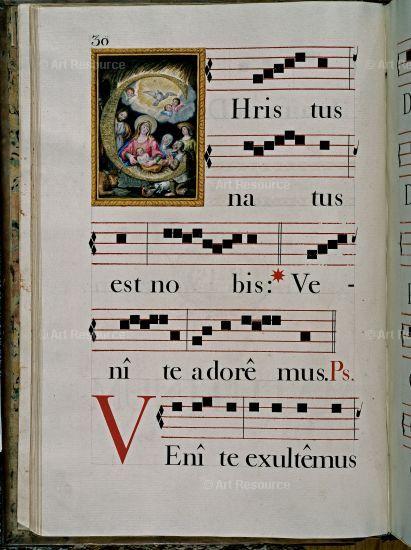 30
CHris tus
na tus
est no bis: * Ve -
nî te adorê mus. Ps.
VEnî te exultêmus
© Art Resource
© Art Resource
© Art Resource
© Art Resource
© Art Resource
© Art Resource